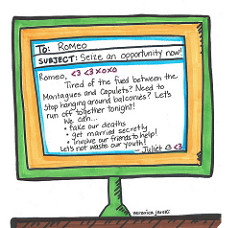 To: Romeo
SUBJECT: Seize an opportunity now!
Romeo, <3 <3 XOXO
Tired of the fued between the
Montagues and Capulets? Need to
stop hanging around balconies? Let's
run off together tonight!
We can...
• fake our deaths
• get married secretly
• Involve our friends to help!
Let's not waste our youth!
- Juliet <3 <3
veronica jarski